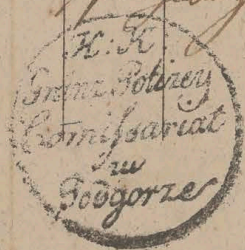 K: K:
Grenz Polizey
Comißariat
zu
Podgorze